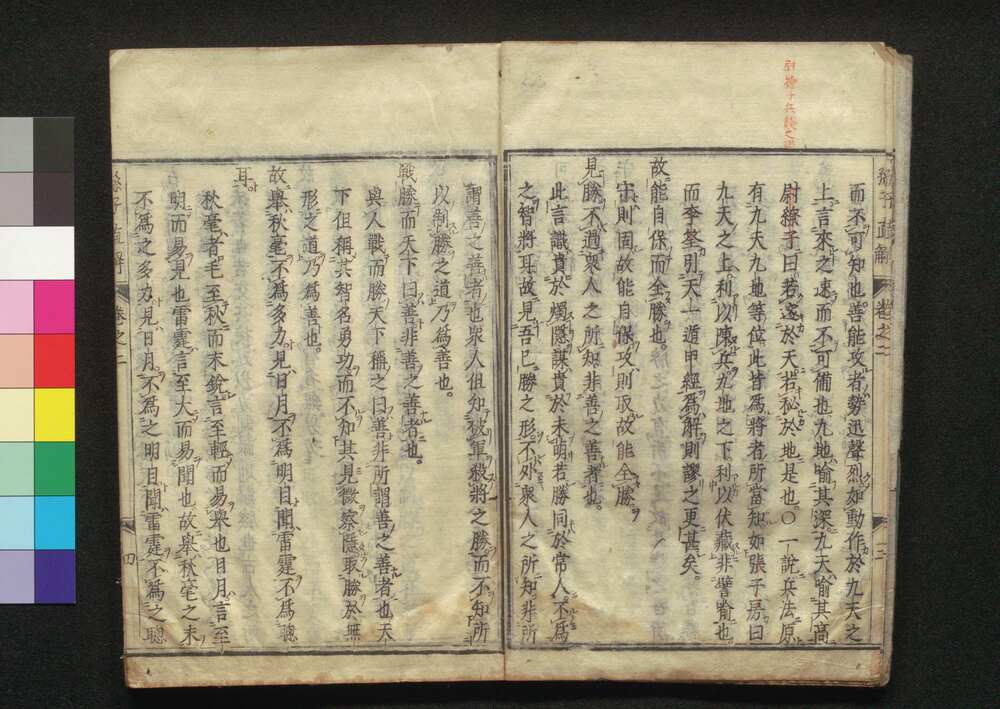 而不可知也善能攻者勢迅聲烈如動作於九天之
上言來之速而不可備也九地喻其深九天喻其高
尉繚子曰若邃於天若秘於地是也○一說兵法原
有九天九地等位此皆爲將者所當知如張子房曰
九天之上利以陳兵九地之下利以伏藏非譬喻也
而李筌引天一遁甲經爲解則謬之更甚矣
故能自保而全勝也
守則固故能自保攻則取故能全勝
見勝不過衆人之所知非善之善者也
此言識貴於燭隱謀貴於未萌若勝同於常人不爲
之智將耳故見吾已勝之形不外衆人之所知非所
謂善之善者也衆人但知破軍殺將之勝而不知所
以制勝之道乃爲善也
戰勝而天下曰善非善之善者也
與人戰而勝天下稱之曰善非所謂善之善者也天
下但稱其智名勇功而不知其見微察隱取勝於無
形之道乃爲善也
故舉秋毫不爲多力見日月不爲明目聞雷霆不爲聰
耳
秋毫者毛至秋而末銳言至輕而易舉也日月言至
明而易見也雷霆言至大而易聞也故舉秋毫之末
不爲之多力見日月不爲之明目聞雷霆不爲之聰
卷之二
四